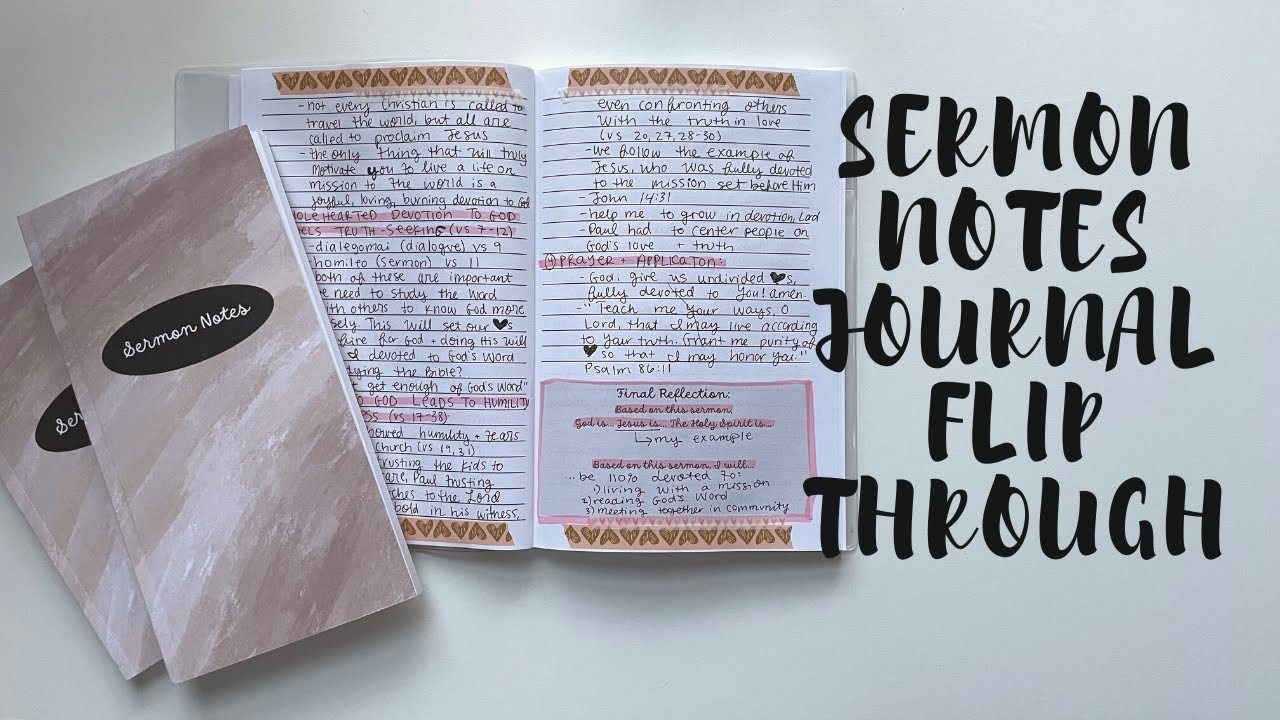 Sermon Notes
Ser
- not every Christian is called to
travel the world, but all are
called to proclaim Jesus
- the only thing that will truly
motivate you to live a life on
mission to the world is a
joyful, loving, burning devotion to God
DEVOTION TO GOD
TRUTH-SEEKING (vs 7-12)
- dialegomai (dialogue) vs 9
homileo (sermon) vs 11
both of these are important
need to study the Word
others to know God more
This will set our ♥s
for God + doing His will
devoted to God's Word
the Bible?
get enough of God's Word"
GOD LEADS TO HUMILITY
(vs 17-38)
humility + tears
church (vs 19, 31)
the kids to
Paul trusting
to the Lord
bold in his witness,
even confronting others
with the truth in love
(vs 20, 27, 28-30)
- we follow the example of
Jesus, who was fully devoted
to the mission set before Him
- John 14:31
- help me to grow in devotion, Lord
- Paul had to center people on
God's love + truth
PRAYER + APPLICATION:
- God, give us undivided ♥s,
fully devoted to You! amen.
- "Teach me your ways, O
Lord, that I may live according
to your truth. Grant me purity of
♥ so that I may honor you."
Psalm 86:11
Final Reflection:
Based on this sermon,
God is... Jesus is... The Holy Spirit is...
↳ my example
Based on this sermon, I will...
...be 110% devoted to:
1) living with mission
2) reading God's Word
3) meeting together in community
SERMON
NOTES
JOURNAL
FLIP
THROUGH